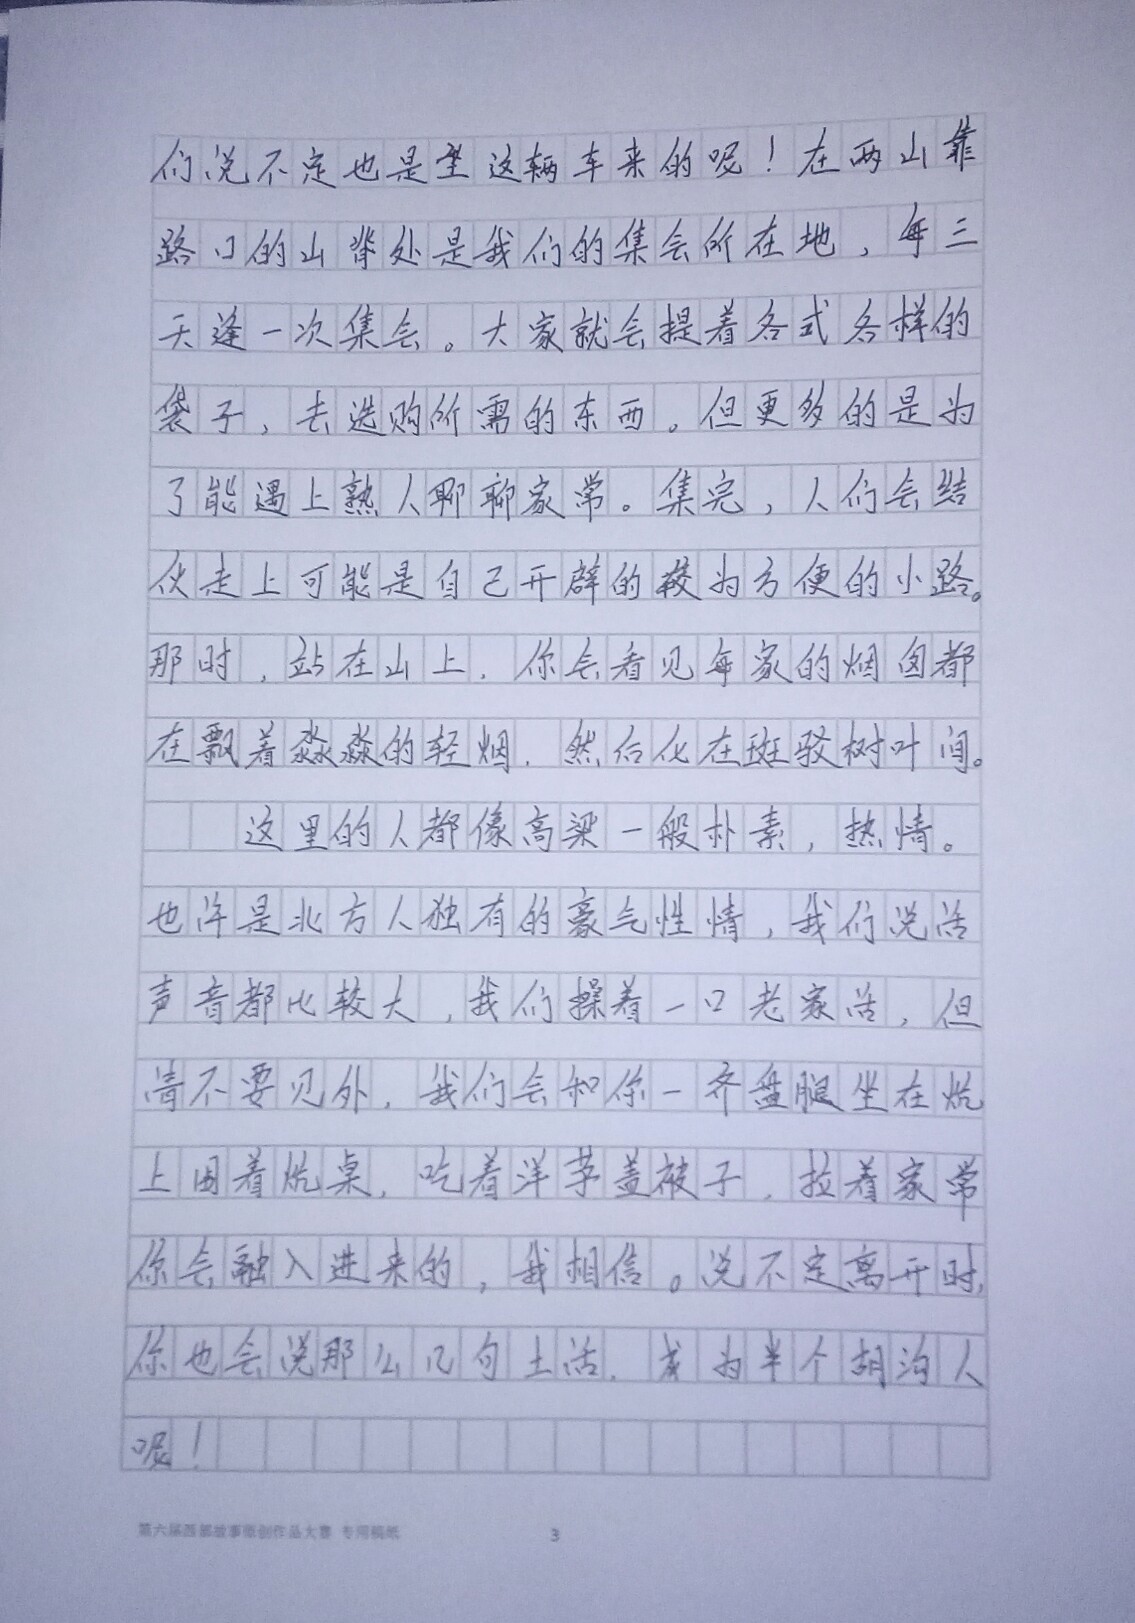 们说不定也是坐这辆车来的呢！在两山靠
路口的山背处是我们的集会所在地，每三
天逢一次集会。大家就会提着各式各样的
袋子，去选购所需的东西。但更多的是为
了能遇上熟人聊聊家常。集完，人们会结
伙走上可能是自己开辟的较为方便的小路。
那时，站在山上，你会看见每家的烟囱都
在飘着淼淼的轻烟，然后化在斑驳树叶间。
这里的人都像高粱一般朴素，热情。
也许是北方人独有的豪气性情，我们说话
声音都比较大，我们操着一口老家话，但
请不要见外，我们会和你一齐盘腿坐在炕
上围着炕桌，吃着洋芋盖被子，拉着家常
你会融入进来的，我相信。说不定离开时，
你也会说那么几句土话，成为半个胡沟人
呢！
第六届西部故事原创作品大赛 专用稿纸 3